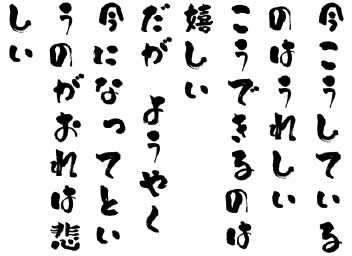 今こうしている
のはうれしい
こうできるのは
嬉しい
だが　ようやく
今になってとい
うのがおれは悲
しい